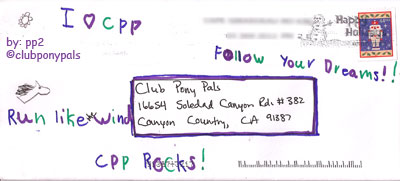 I ♡ cpp
by: pp2
@clubponypals
Happy
Follow Your Dreams!!
Club Pony Pals
16654 Soledad Canyon Rd. #382
Canyon Country, CA 91387
Run like wind
CPP Rocks!